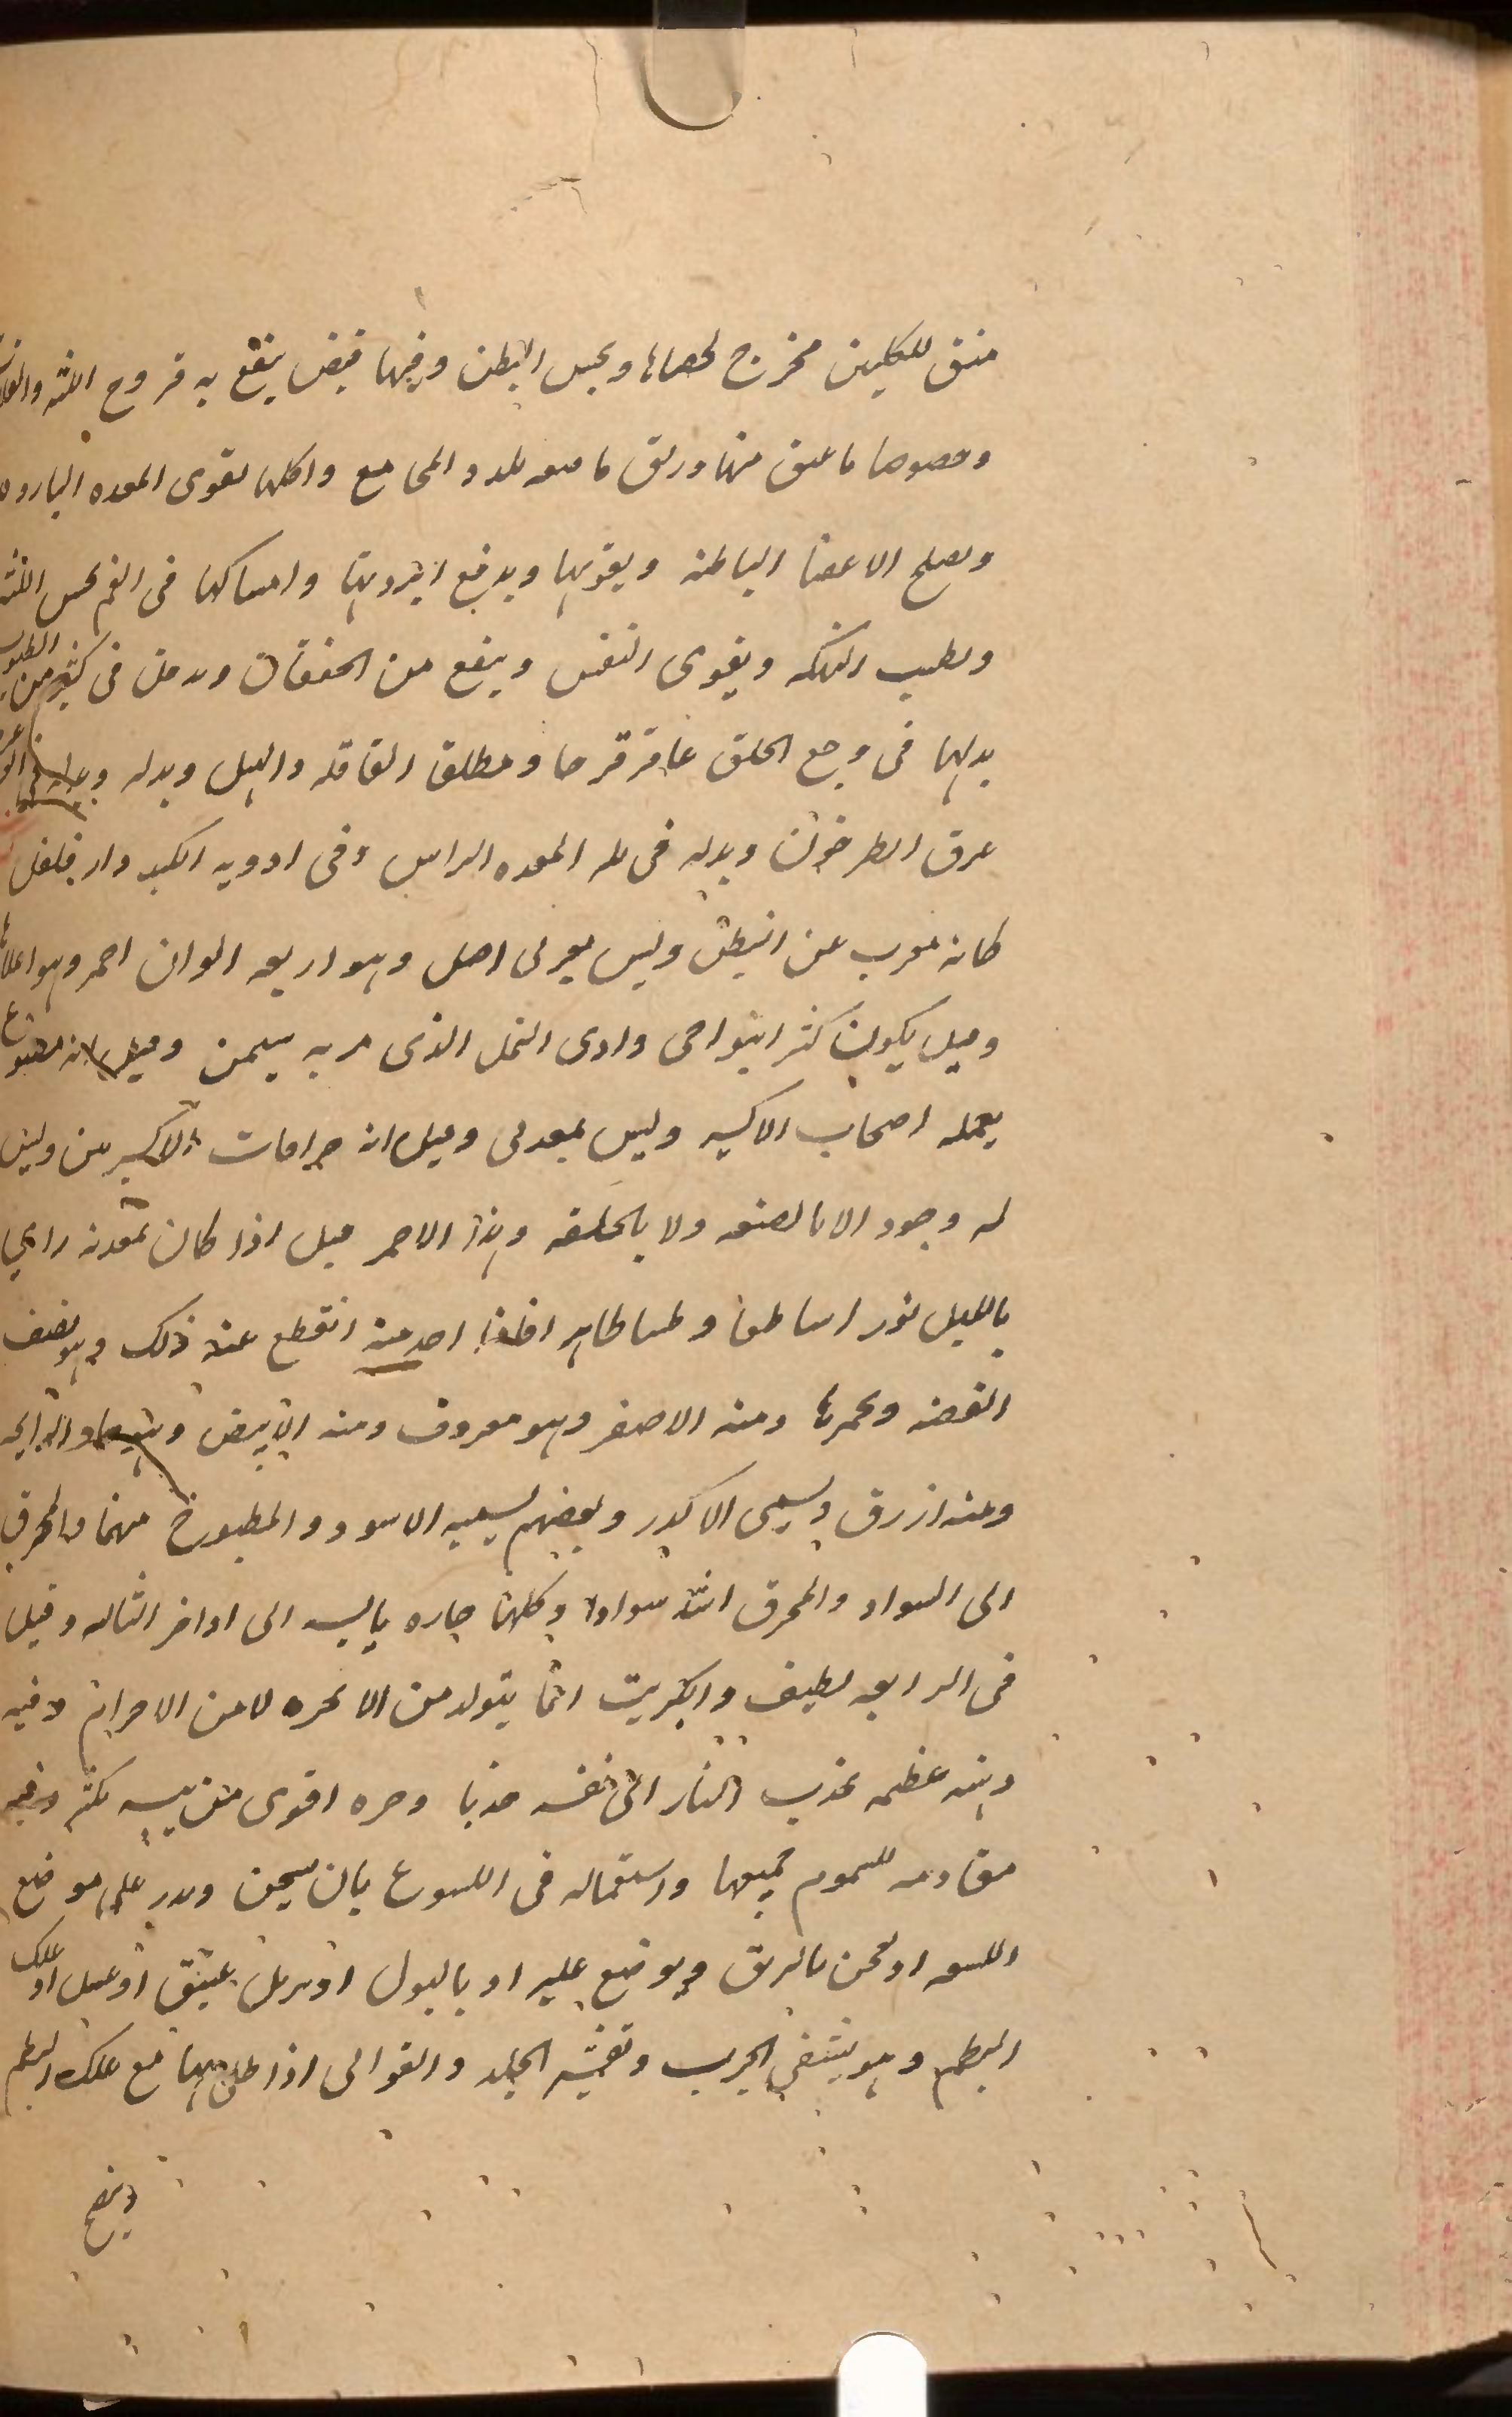 منق للكليين مخرج لحصاها ويحبس البطن وفيها قبض ينفع به قروح اللثه
وخصوصا ما عتق منها وريق ماضغه يلذذ المجامع واكلها يقوى المعده البارده
ويصلح الاعضا الباطنه ويقويها ويدفع ابرديتها وامساكها فى الفم يحسن اللثه
ويطيب النكهه ويقوى النفس وينفع من الخفقان ويدخل فى كثير من الطيوب
بدلها فى وجع الحلق عاقرقرحا ومطلقا القاقله والهيل وبدله
عرق الطرخون وبدله فى المعده الراسن وفى ادويه الكبد دارفلفل
كانه معرب عن النبطى وليس بعربى اصل وهو اربعه الوان احمر وهو اعلاها
وقيل يكون كثر ابنواحى وادى النمل الذى مر به سليمن وقيل انه مصنوع
يعمله اصحاب الاكسير وليس بمعدنى وقيل انه الاكسيرين وليس
له وجود الا بالصنعه ولا بالخلقه وهذا الاحمر قيل اذا كان بمعدنه راى
بالليل نور اساطعا اخذ احد منه انقطع عنه ذلك وهو يصبغ
الفضه ويحمرها ومنه الاصفر وهو معروف ومنه الابيض الرايحه
ومنه ازرق ويسمى الاكدر وبعضهم يسميه الاسود والمطبوخ منها والمحرق
الى السواد والمحرق اشد سوادا وكلها حاره يابسه الى اواخر الثالثه وقيل
فى الرابعه لطيف والكبريت انما يتولد من الابخره لا من الاجرام وفيه
دهنيه عظيمه يجذب النار الى نفسه جذبا وحره اقوى من يبسه بكثير وفيه
مقاومه للسموم جميعها واستعماله فى اللسوع بان يسحق ويذر على موضع
اللسعه او يعجن بالريق ويوضع عليه او بالبول او بزيت عتيق او عسل او علك
البطم وهو يشفى الجرب وتقشير الجلد والقوابى اذا طلى بها مع علك البطم
وينضج